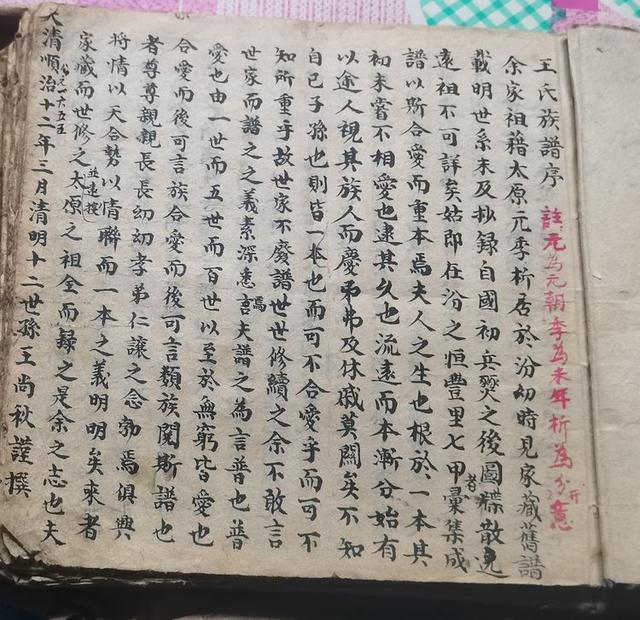 王氏族譜序
註：元為元朝季為末年析為分開意
余家祖籍太原元季析居於汾幼時見家藏舊譜
載明世系未及抄錄自國初兵燹之後圖牒散逸
遠祖不可詳矣姑即在汾之恒豐里七甲者彙集成
譜以斯合愛而重本焉夫人之生也根於一本其
初未嘗不相愛也逮其久也流遠而本漸分始有
以途人視其族人而慶弔弗及休戚莫關矣不知
自己子孫也則皆一本也而可不合愛乎而可不
知所重乎故世家不廢譜世世修續之余不敢言
世家而譜之之義素深悉焉言夫譜之為言普也普
愛也由一世而五世而百世以至於無窮皆愛也
合愛而後可言族合愛而後可言類族閱斯譜也
者尊尊親親長長幼幼孝弟仁讓之念勃焉俱興
將情以天合勢以情聯而一本之義明明矣來者
家藏而世修之並遠搜太原之祖全而録之是余之志也夫
大清順治十二年三月清明十二世孫王尚秋謹撰
六五五